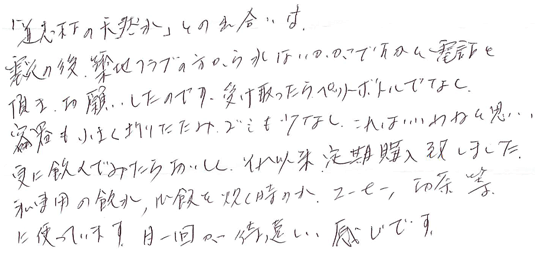 「道志村の天然水」との出合いは、
震災の後、築地クラブの方からお水はいかがですかと電話を
頂き、お願いしたのですが、受け取ったらペットボトルでなく、
容器も小さく折りたたみ、ゴミも少なく、これはいいわねと思い、
更に飲んでみたらおいしく、それ以来定期購入致しました。
私専用の飲み水、ご飯を炊く時の水、コーヒー、お茶等
に使っています。月一回が待遠しい感じです。